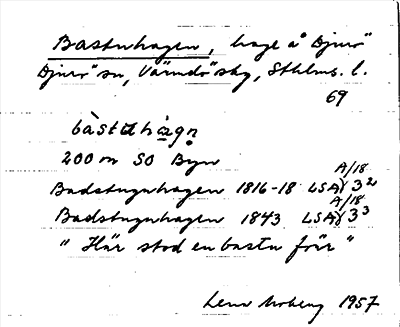 Bastuhagen, hage å Djurö
Djurö sn, Värmdö skg, Sthlms. l.
69
bàstuhàgɳ
200 m SO Byn
A/18
Badstuguhagen 1816-18 LSA) 3²
A/18
Badstuguhagen 1843 LSA) 3³
"Här stod en bastu förr"
Lena Moberg 1957